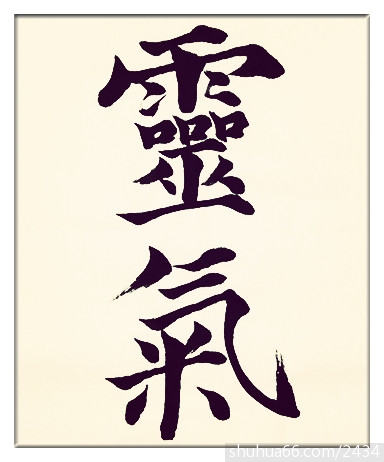 靈
氣
shuhua66.com/2434